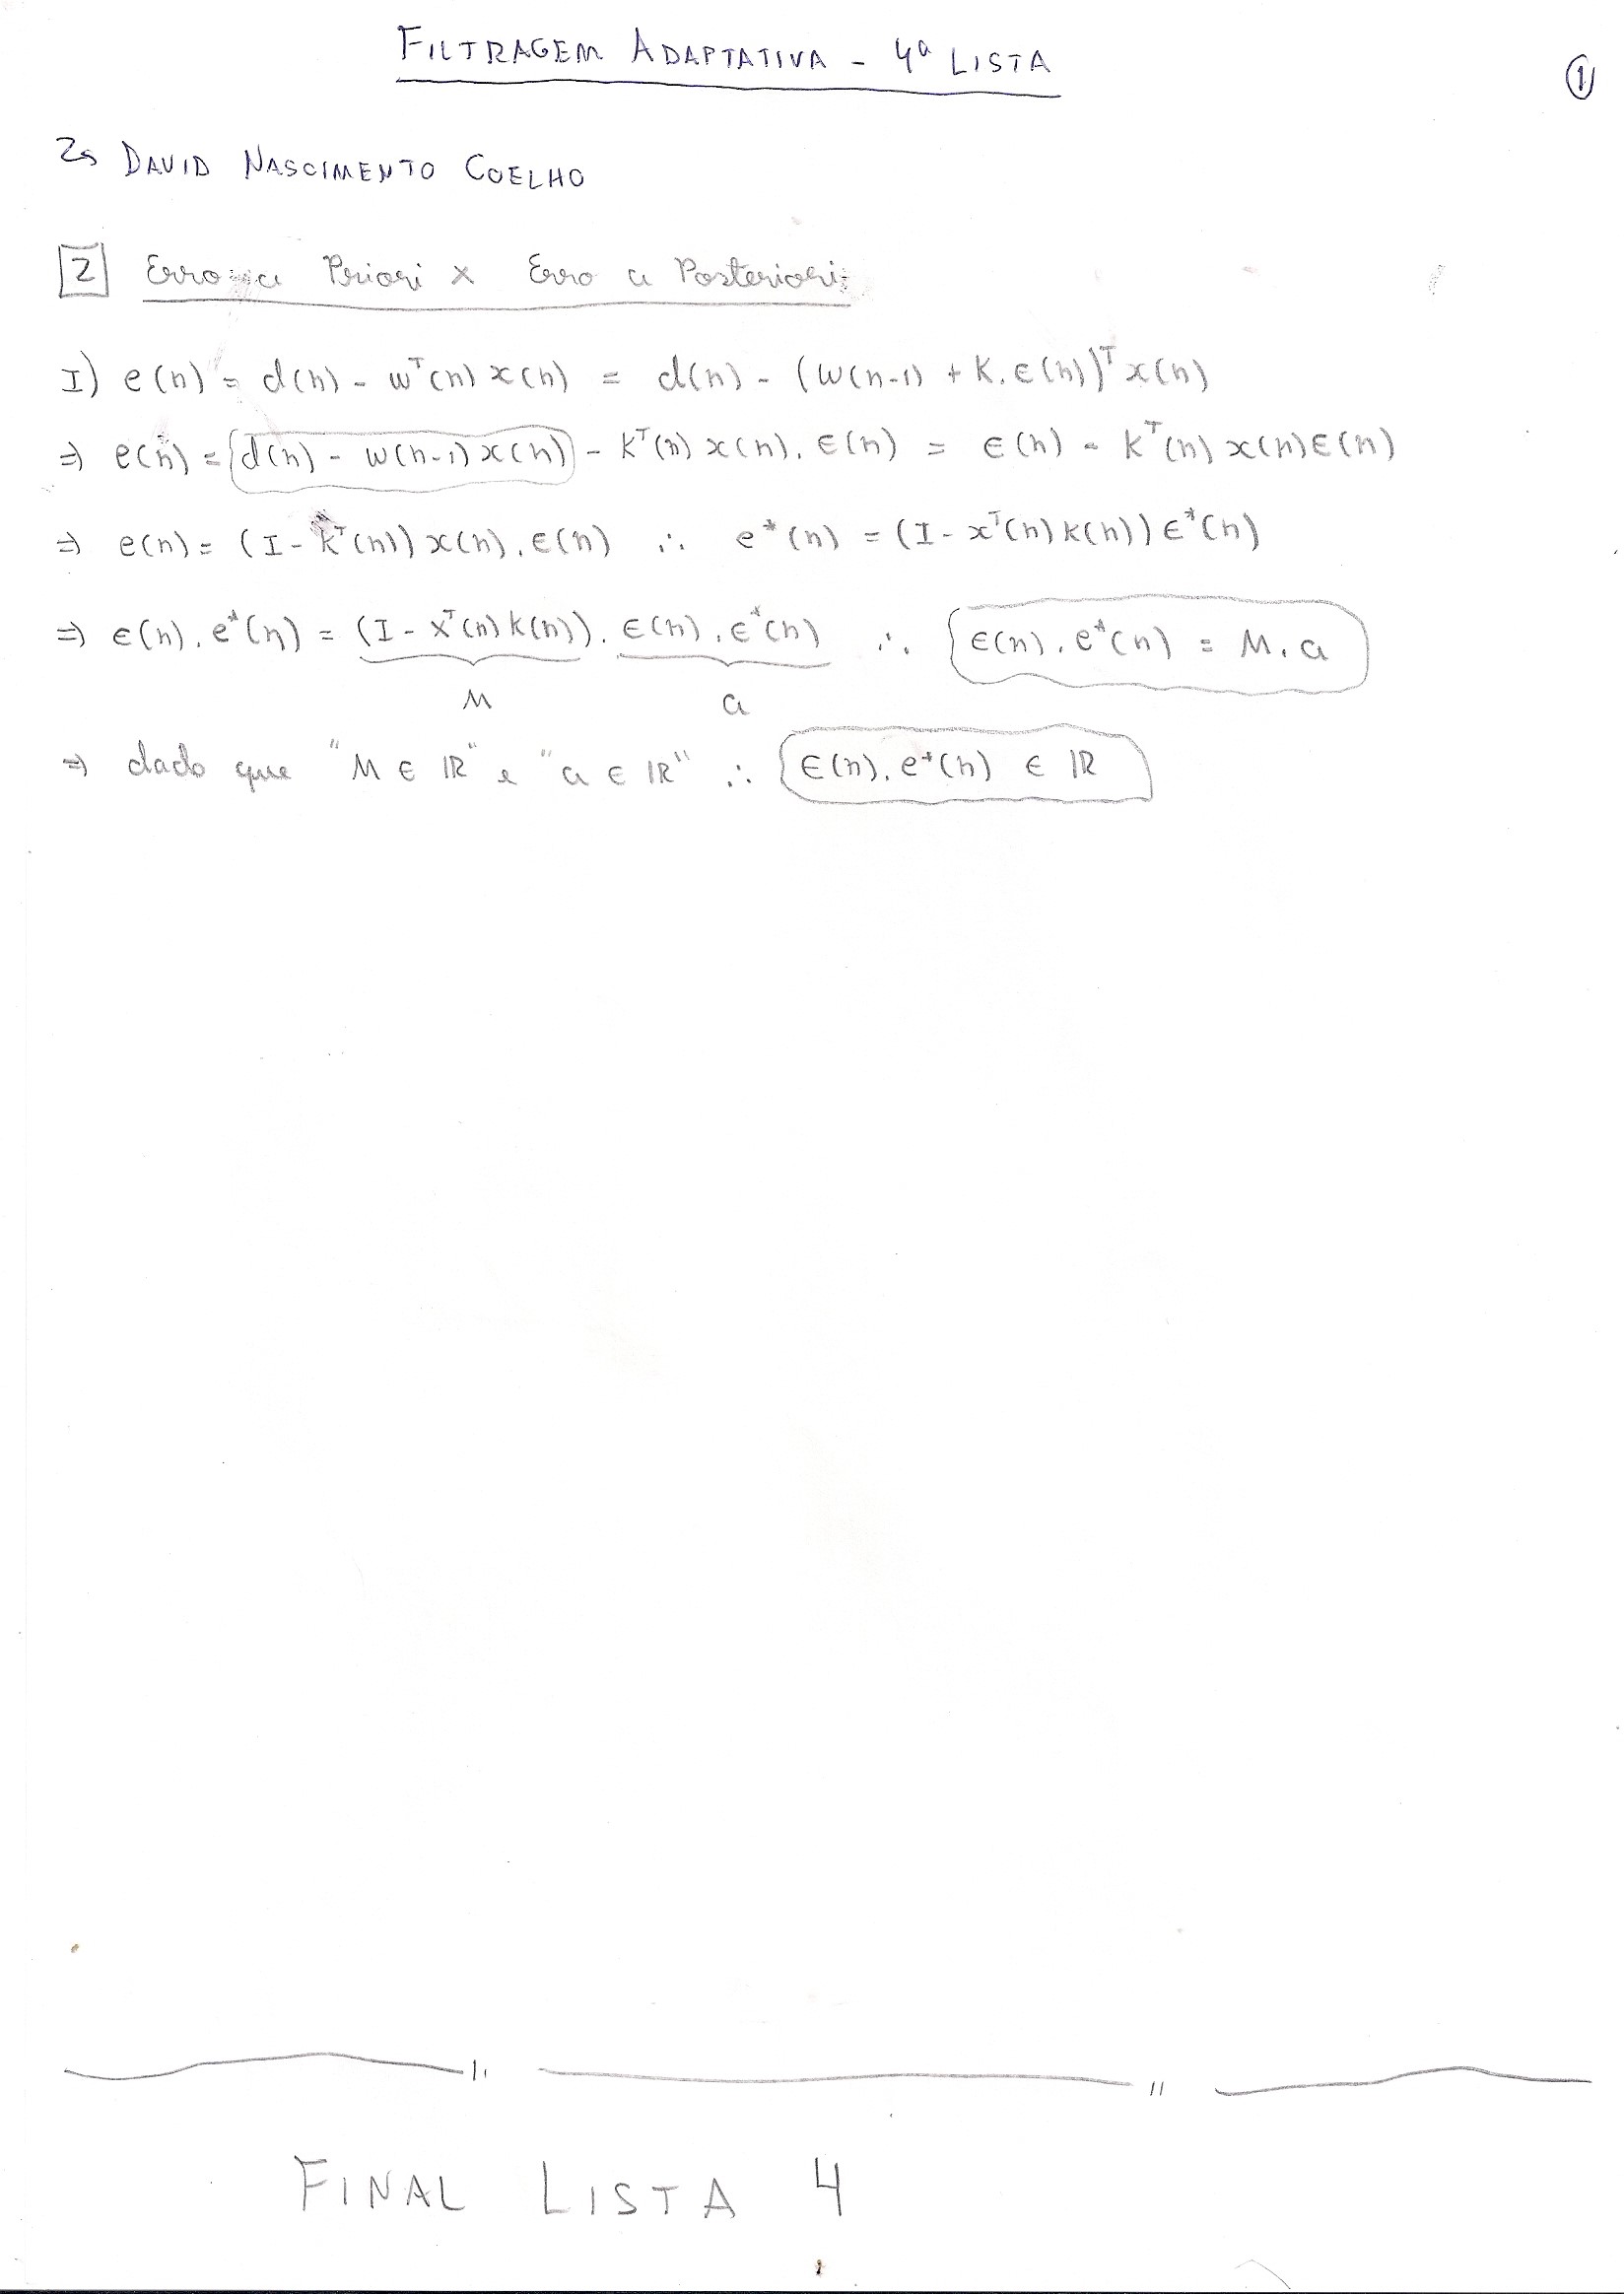 FILTRAGEM ADAPTATIVA - 4ª LISTA
①
↳ DAVID NASCIMENTO COELHO
2 Erro a Priori x Erro a Posteriori:
I) e(n) = d(n) - wᵀ(n) x(n) = d(n) - (w(n-1) + K.ϵ(n))ᵀ x(n)
⇒ e(n) = d(n) - w(n-1) x(n) - Kᵀ(n) x(n). ϵ(n) = ϵ(n) - Kᵀ(n) x(n) ϵ(n)
⇒ e(n) = (I - Kᵀ(n)) x(n). ϵ(n) ∴ e*(n) = (I - xᵀ(n) K(n)) ϵ*(n)
⇒ ϵ(n). e*(n) = (I - xᵀ(n) K(n)). ϵ(n). ϵ*(n) ∴ ϵ(n). e*(n) = M. a
M a
⇒ dado que "M ∈ ℝ" e "a ∈ ℝ" ∴ ϵ(n). e*(n) ∈ ℝ
FINAL LISTA 4